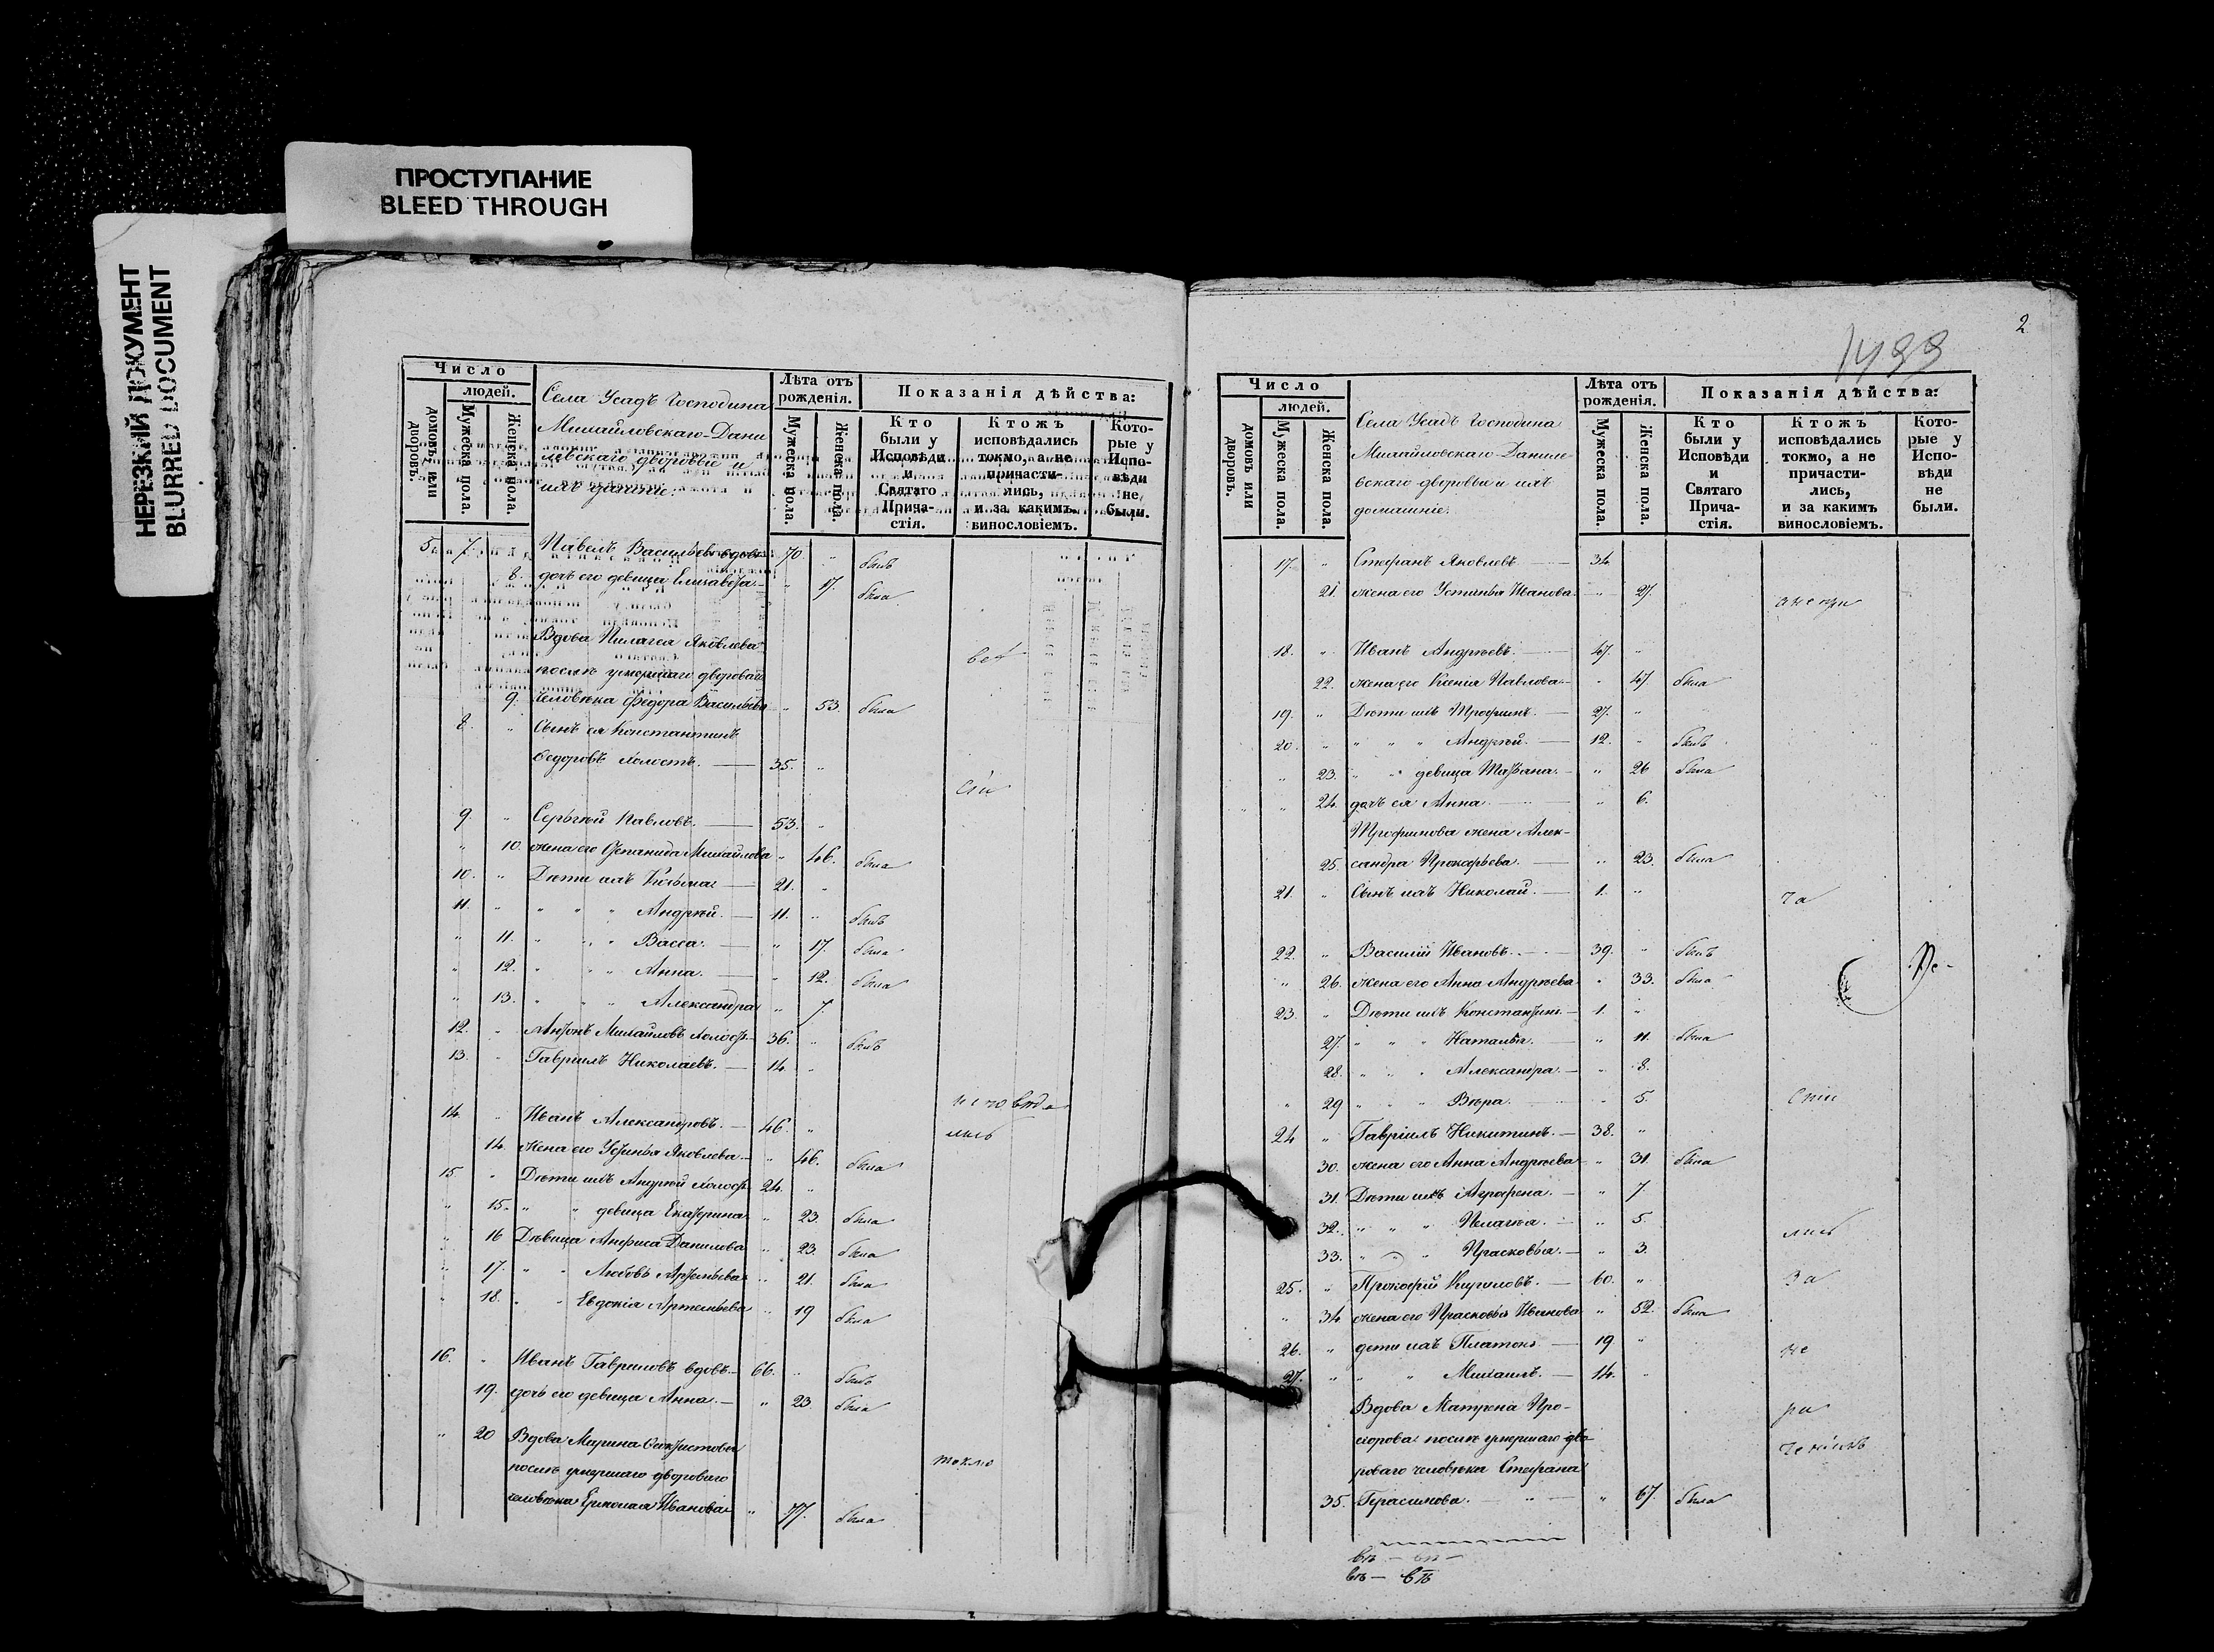 ПРОСТУПАНИЕ
BLEED THROUGH
НЕРЕЗКИЙ ДОКУМЕНТ
BLURRED DOCUMENT
Число
людей.
домовъ, или дворовъ.
Мужеска пола.
Женска пола.
Села Усадъ Господина
Михайловскаго-Дани
левскаго дворовые и
ихъ
Лѣта отъ рожденія.
Мужеска пола.
Женска пола.
Показанія дѣйства:
Кто были у Исповѣди и Святаго Причастія.
Ктожъ исповѣдались токмо, а не причастились, и за какимъ винословіемъ.
Которые у Исповѣди не были.
5. 7. Павелъ Васильевъ вдовъ 70 " былъ
8. дочь его девица Елисавета " 17. была
Вдова Пилагея Яковлева
послѣ умершаго двороваго
9. человѣка Федора Васильева " 53. была
8. " Сынъ ея Константинъ
Федоровъ холостъ. 35. "
9. " Сергѣй Павловъ. 53. "
" 10. жена его Степанида Михайлова " 46. была
10. " Дѣти ихъ Козьма 21. "
11. " " " " Андрѣй. 11. " былъ
" 11. " " " Васса. " 17. была
" 12. " " " Анна. " 12. была
" 13. " " " Александра " 7.
12. " Антонъ Михайловъ холостъ 36. " былъ
13. " Гавріилъ Николаевъ. 14. "
14. " Иванъ Александровъ. 46. "
14. жена его Устинья Яковлева " 46. была
лись
15 " Дѣти ихъ Андрѣй холостъ 24. "
" 15. " " девица Екатерина " 23. была
" 16 Дѣвица Анфиса Данилова " 23. была
" 17. " " Любовь Артемьева " 21. была
" 18. " " Евдокія Артемьева " 19 была
16. " Иванъ Гавриловъ вдовъ 66. " былъ
19. дочь его девица Анна. " 23. была
" 20 Вдова Марина
послѣ умершаго двороваго
токмо
человѣка Ермолая Иванова " 77. была
2
1499
Число
людей.
домовъ или дворовъ.
Мужеска пола.
Женска пола.
Села Усадъ Господина
Михайловскаго-Даниле-
вскаго дворовые и ихъ
домашніе.
Лѣта отъ рожденія.
Мужеска пола.
Женска пола.
Показанія дѣйства:
Кто были у Исповѣди и Святаго Причастія.
Ктожъ исповѣдались токмо, а не причастились, и за какимъ винословіемъ.
Которые у Исповѣди не были.
17. " Стефанъ Яковлевъ 34.
21. жена его Устинья Иванова " 27.
а не при
18. " Иванъ Андрѣевъ. 47. "
22. жена его Ксенія Павлова " 47. была
19. " Дѣти ихъ Трофимъ. 27. "
20. " " " " Андрѣй. 12. " былъ
" 23. " " девица Татьяна. " 26 была
" 24. дочь ея Анна. " 6.
Трофимова жена Алек-
25. сандра Прокофьева. " 23. была
21. " Сынъ ихъ Николай. 1. "
ча
22. " Василій Ивановъ. 39. " былъ
" 26. жена его Анна Андрѣева " 33. была
23. " Дѣти ихъ Константинъ 1. "
27. " " " Наталья. " 11. была
28. " " " Александра. " 8.
" 29 " " " Вѣра. " 5.
24 " Гавріилъ Никитинъ. 38. "
30. жена его Анна Андрѣева " 31. была
31. Дѣти ихъ Агрофена. " 7.
32. " " " Пелагѣя. " 5.
лись
33. " " " Прасковья. " 3.
25. " Прокофій Кириловъ. 60. "
за
" 34 жена его Прасковья Иванова " 52. была
26. " дети ихъ Платонъ 19 "
не
27. " " " Михаилъ. 14. "
Вдова Матрена Про-
хорова послѣ умершаго дво
роваго человѣка Стефана
35. Герасимова. " 67. была